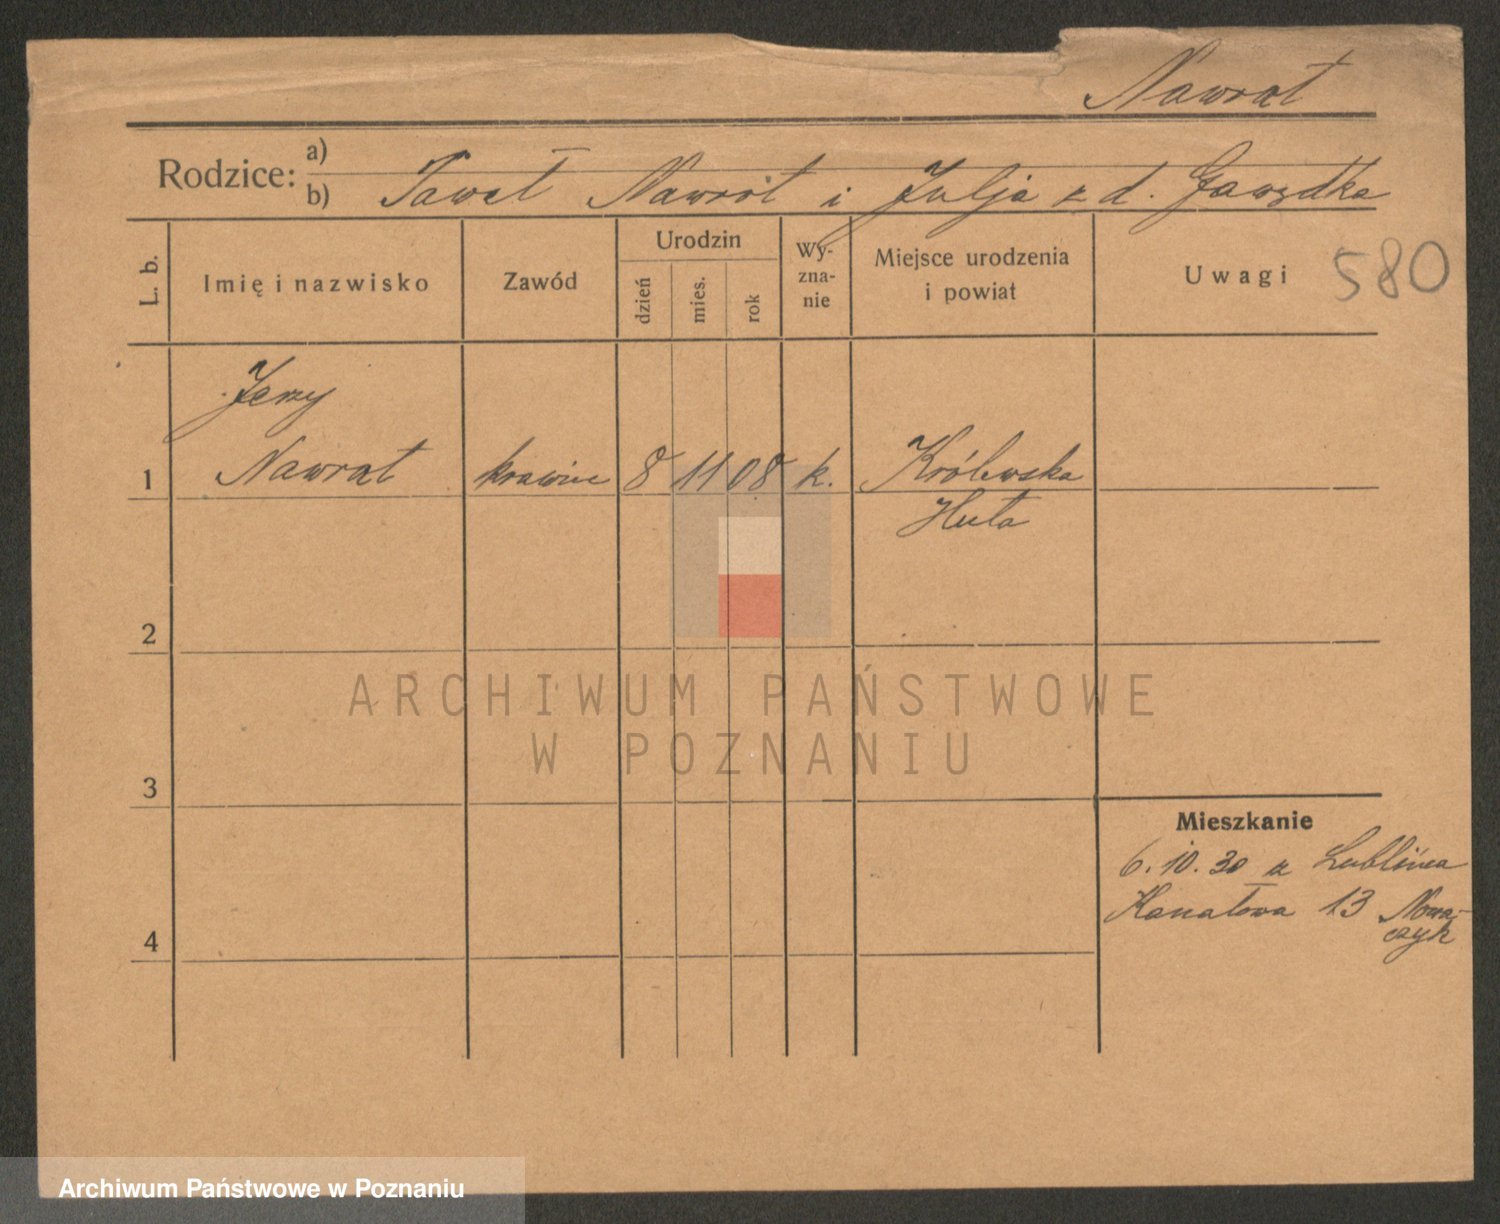 Nawrat
Rodzice: a)
b) Paweł Nawrot i Julja z d. Gawędka
L. b.
Imię i nazwisko
Zawód
Urodzin
dzień
mies.
rok
Wy-
zna-
nie
Miejsce urodzenia
i powiat
Uwagi
580
Jerzy
1 Nawrat krawiec 8 11 08 k. Królewska
Huta
2
3
4
Mieszkanie
6.10.30 z Lublińca
Kanałowa 13 Nowa-
czyk
ARCHIWUM PAŃSTWOWE
W POZNANIU
Archiwum Państwowe w Poznaniu